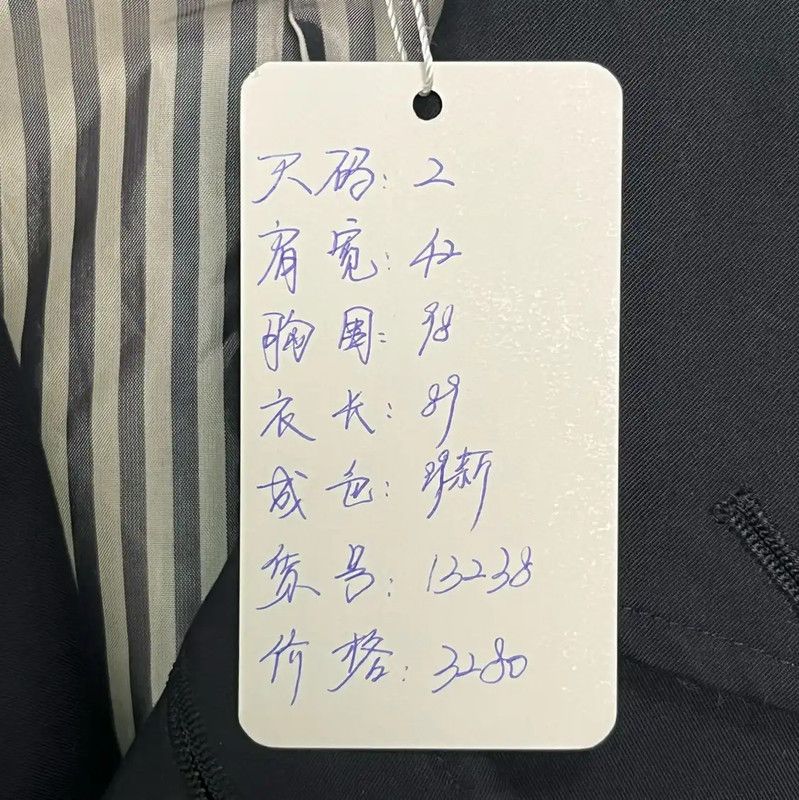 尺码: 2
肩宽: 42
胸围: 98
衣长: 89
成色: 99新
货号: 13238
价格: 3280